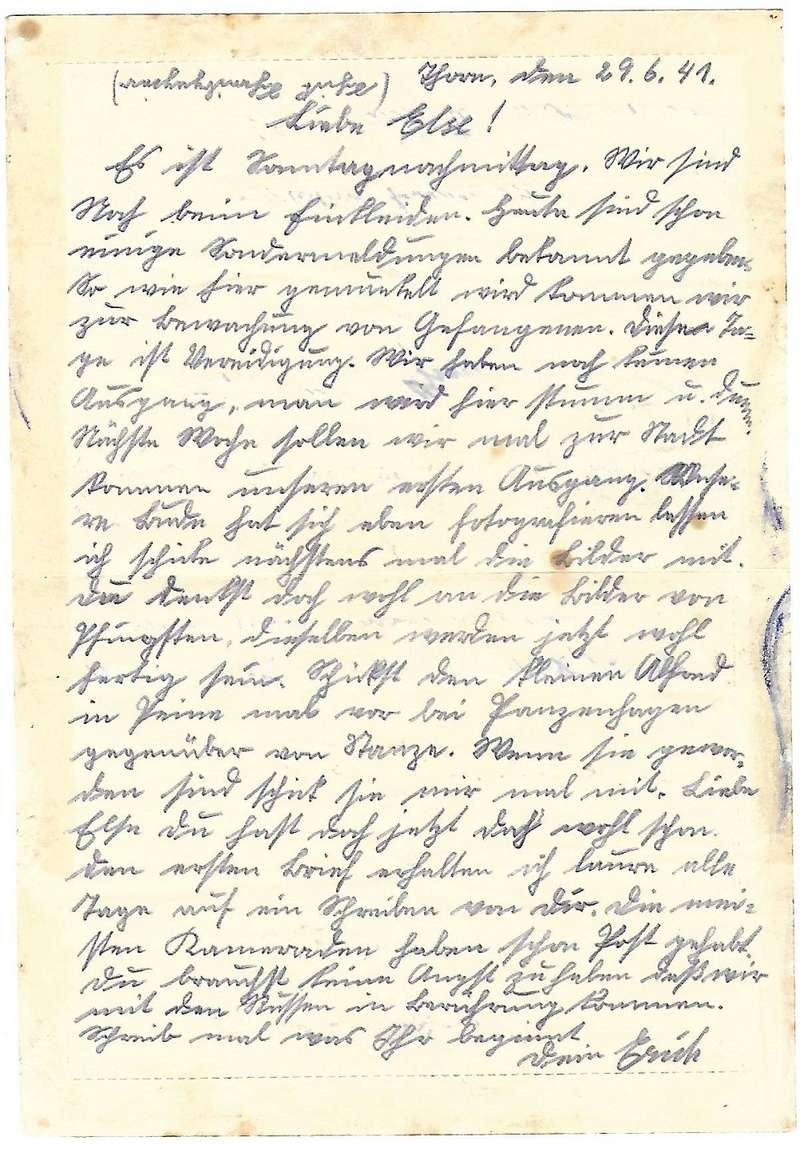 Thorn, den 29.6.41.
Liebe Else!
Es ist Sonntagnachmittag. Wir sind
Noch beim Einkleiden. Heute sind schon
einige Sondermeldungen bekannt gegeben.
So wie hier gemunkelt wird kommen wir
zur Bewachung von Gefangenen. Diese Ta-
ge ist Vereidigung. Wir haben noch keinen
Ausgang, man wird hier stumm u. dumm.
Nächste Woche sollen wir mal zur Stadt
kommen unseren ersten Ausgang. Unse-
re Bude hat sich eben fotografieren lassen
ich schicke nächstens mal die Bilder mit.
Du denkst doch wohl an die Bilder von
Pfingsten, dieselben werden jetzt wohl
fertig sein. Schickst den kleinen Alfred
in Peine mal vor bei Panzenhagen
gegenüber von Stanze. Wenn sie gewor-
den sind schick sie mir mal mit. Liebe
Else du hast doch jetzt doch wohl schon
den ersten Brief erhalten ich laure alle
Tage auf ein Schreiben von dir. Die mei-
sten Kameraden haben schon Post gehabt.
Du brauchst keine Angst zu haben daß wir
mit den Russen in Berührung kommen.
Schreib mal was Ihr beginnt
Dein Erich